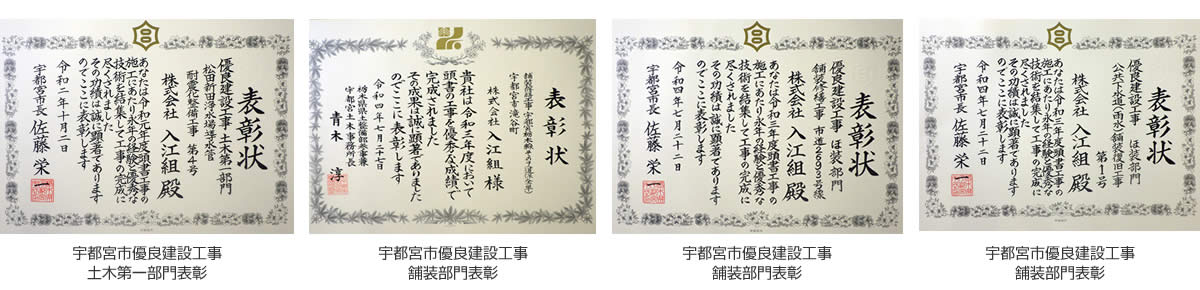 表彰状
優良建設工事 土木第一部門
松田新田浄水場導水管
耐震化整備工事 第4号
株式会社 入江組 殿
あなたは令和元年度頭書工事の
施工にあたり永年の経験と優秀な
技術を結集して工事の完成に
尽くされました
その功績は誠に顕著であります
のでここに表彰します
令和二年十月二日
宇都宮市長 佐藤 栄一
宇都宮市優良建設工事
土木第一部門表彰
表彰状
宇都宮市滝谷町
株式会社 入江組 様
貴社は令和三年度において
頭書の工事を優秀な成績で
完成されました
その成果は誠に顕著でありました
のでここに表彰します
令和四年七月二十七日
栃木県県土整備部参事兼
宇都宮土木事務所長
青木 淳
宇都宮市優良建設工事
舗装部門表彰
表彰状
優良建設工事 ほ装部門
舗装修繕工事 市道2693号線
株式会社 入江組 殿
あなたは令和三年度頭書工事の
施工にあたり永年の経験と優秀な
技術を結集して工事の完成に
尽くされました
その功績は誠に顕著であります
のでここに表彰します
令和四年七月二十二日
宇都宮市長 佐藤 栄一
宇都宮市優良建設工事
舗装部門表彰
表彰状
優良建設工事 ほ装部門
公共下水道(雨水)舗装復旧工事
第1号
株式会社 入江組 殿
あなたは令和三年度頭書工事の
施工にあたり永年の経験と優秀な
技術を結集して工事の完成に
尽くされました
その功績は誠に顕著であります
のでここに表彰します
令和四年七月二十二日
宇都宮市長 佐藤 栄一
宇都宮市優良建設工事
舗装部門表彰